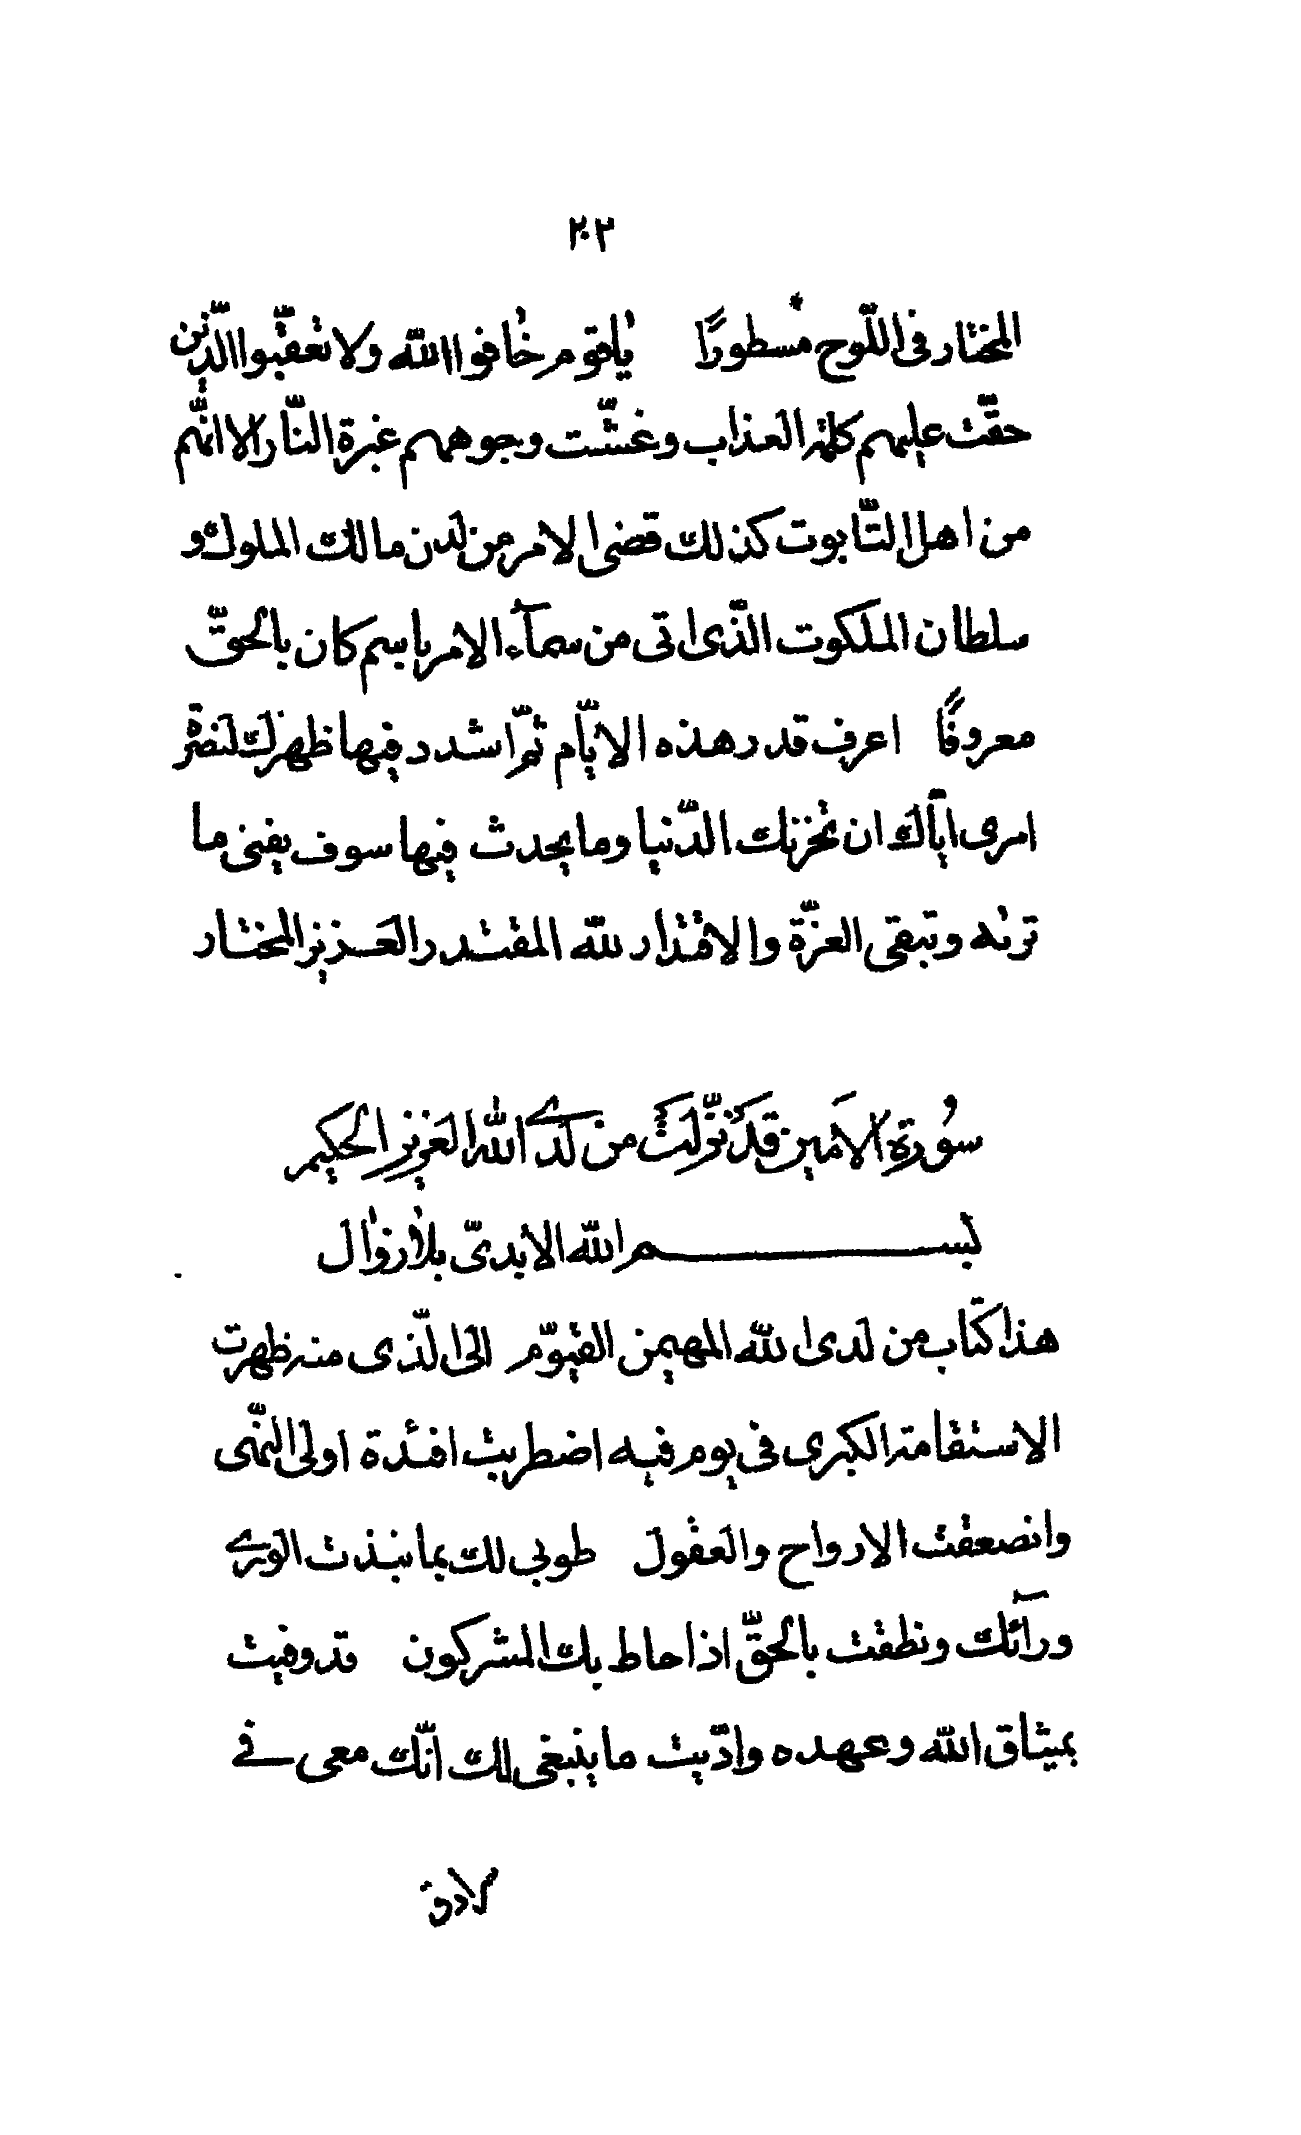 ٢٠٢
المختار فی اللّوح مسطورًا یا قوم خافوا الله ولا تعقّبوا الّذین
حقّت علیهم کلمة العذاب وغشّت وجوههم غبرة النّار الا انّهم
من اهل التّابوت کذلك قضی الامر من لدن مالك الملوك و
سلطان الملکوت الّذی اتی من سمآء الامر باسم کان بالحقّ
معروفًا اعرف قدر هذه الایّام ثمّ اشدد فیها ظهرك لنصرة
امری ایّاك ان تحزنك الدّنیا وما یحدث فیها سوف یفنی ما
ترىه وتبقی العزّة والاقتدار لله المقتدر العزیز المختار
سورة الامین قد نزّلت من لدی الله العزیز الحکیم
بسم الله الابدیّ بلا زوال
هذا کتاب من لدی الله المهیمن القیّوم الی الّذی منه ظهرت
الاستقامة الکبری فی یوم فیه اضطربت افئدة اولی النّهی
وانصعقت الارواح والعقول طوبی لك بما نبذت الوری
ورآئك ونطقت بالحقّ اذ احاط بك المشرکون قد وفیت
بمیثاق الله وعهده وادّیت ما ینبغی لك انّك معی فی